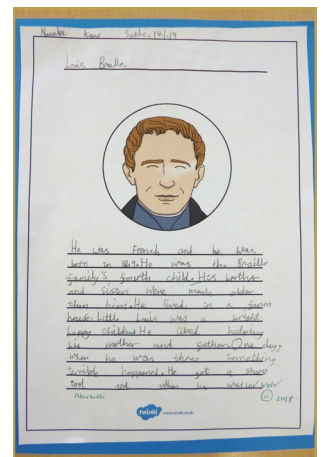 Kaur 19.1.19
Louis Braille.
He was French and he was
born in 1809. He was the Braille
family's fourth child. His
and sisters were much older
than him. He lived in a
house. Little Louis was a bright
happy He liked helping
his mother and father. One day,
when he was three something
terrible happened. He got a sharp
tool and when he was
twinkl www.twinkl.co.uk